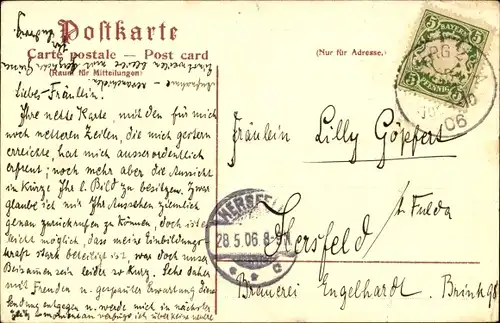 Postkarte
Carte postale — Post card
(Raum für Mitteilungen)
(Nur für Adresse.)
BAYERN
5 5
PFENNIG
06
Liebes Fräulein!
Ihre nette Karte, mit den für mich
noch netteren Zeilen, die mich gestern
erreichte, hat mich ausserordentlich
erfreut; noch mehr aber die Aussicht
in Kürze Ihr l. Bild zu besitzen. Zwar
glaube ich mir Ihr Aussehen ziemlich
genau zurückrufen zu können, doch ist es
leicht möglich, dass meine Einbildungs-
kraft stark beteiligt ist, war doch unser
Beisammensein leider so kurz. Sehe daher
mit Freuden u. gespannter Erwartung
Sendung entgegen u. werde mich in nächster
Fräulein Lilly Göpfert
Hersfeld a/ Fulda
Brauerei Engelhardt. Brink
HERSFELD
28.5.06.8-